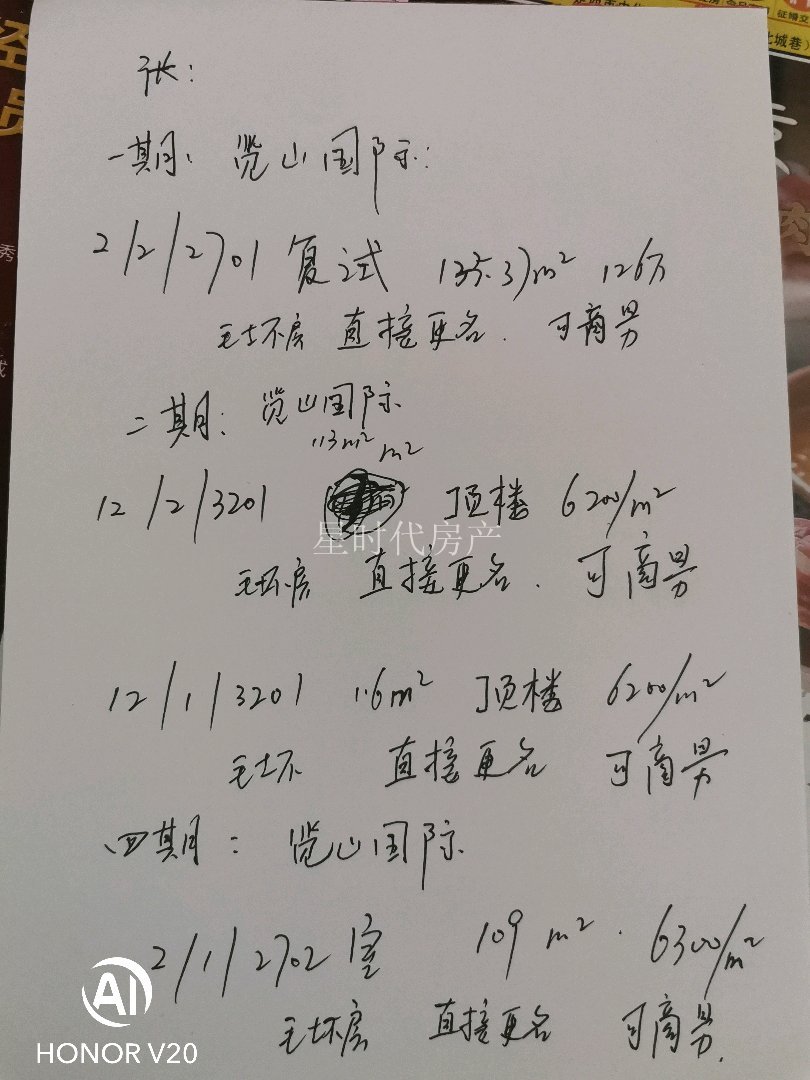 张:
一期: 览山国际:
2/2/2701 复试 135.37m² 126万
毛坯房 直接更名. 可商男
二期: 览山国际
113m² m²
12/2/3201 顶楼 6200/m²
星时代房产
毛坯房 直接更名. 可商男
12/1/3201 116m² 顶楼 6200/m²
毛坯 直接更名 可商男
四期: 览山国际
2/1/2702室 109m². 6300/m²
毛坯房 直接更名 可商男.
AI
HONOR V20
征婚交
北城巷)
秀